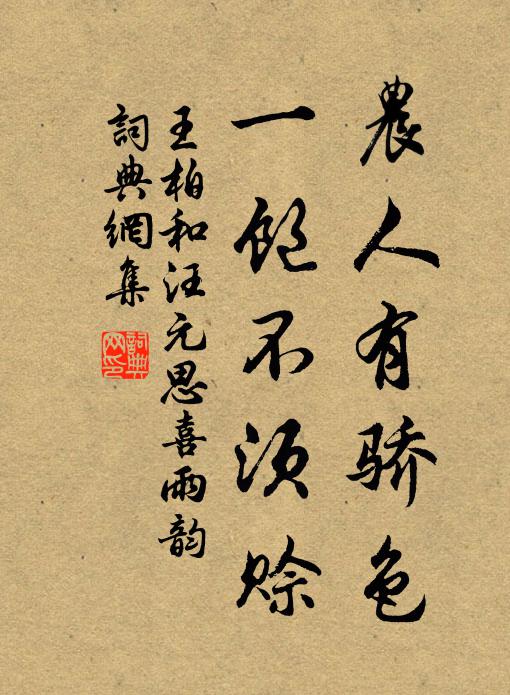 農人有骄色
一飽不須赊
王柏和汪元思喜雨韵
詞典網集
詞典网印